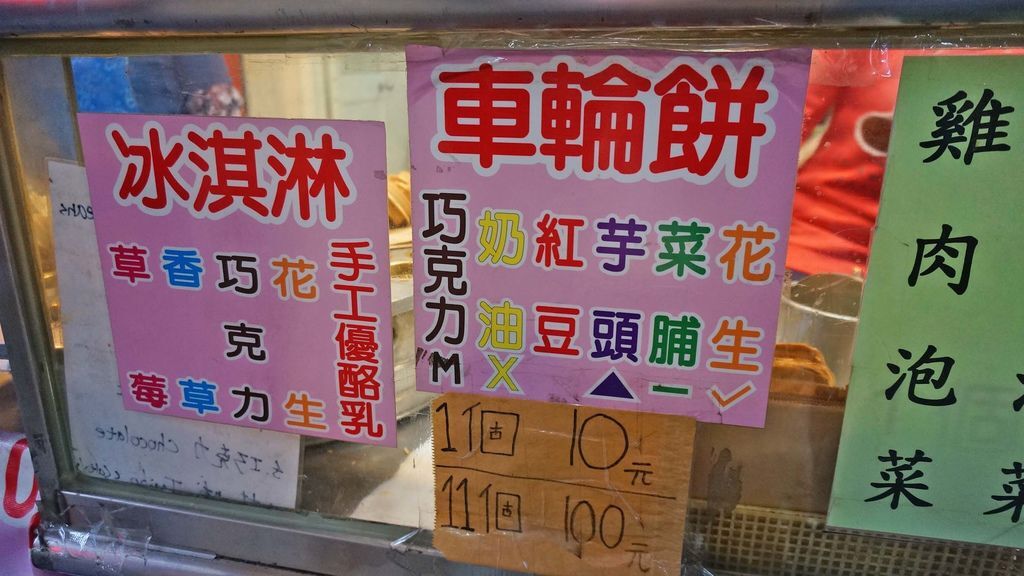 冰淇淋
手工優酪乳
花生
巧克力
香草
草莓
車輪餅
花生✓
菜脯一
芋頭▲
紅豆
奶油X
巧克力M
1個 10元
11個 100元
雞肉泡菜
巧克力 chocolate